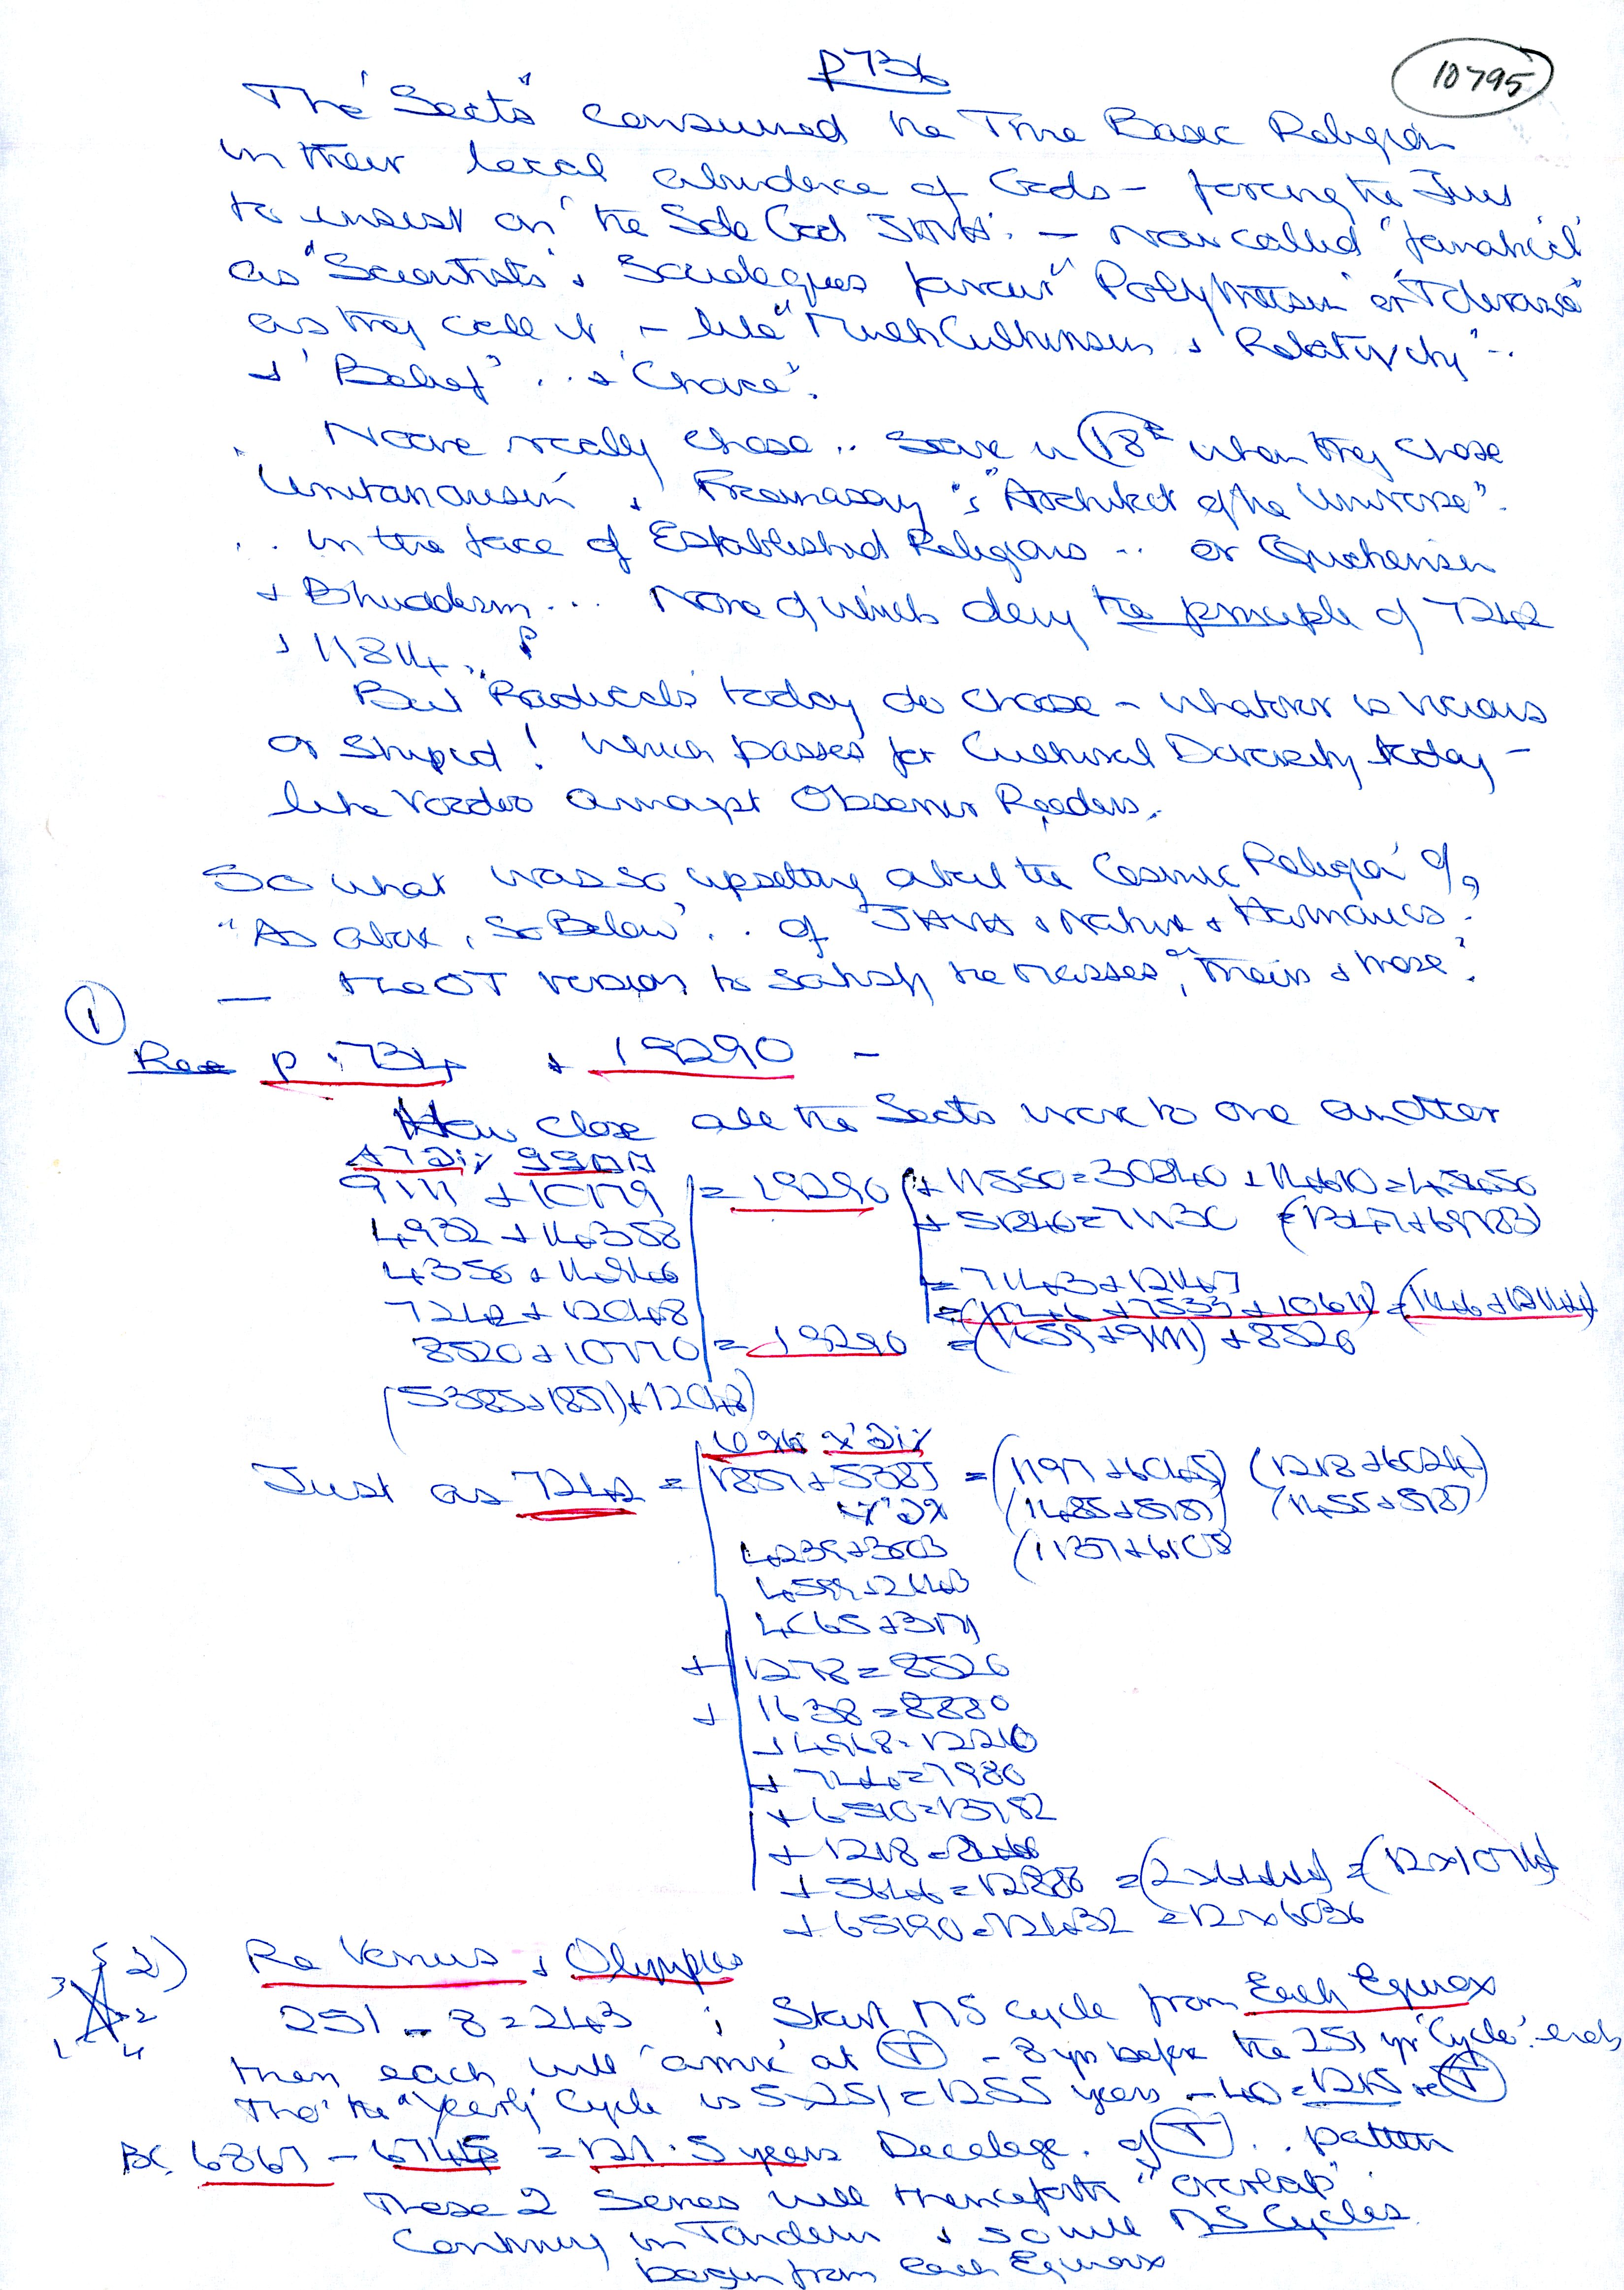 p736
10795
The "Sects" consumed the True Basic Religion
in their local abundence of Gods - forcing the Jews
to insist on 'the Sole God JHVH'. - now called "fanatical"
as "Scientists" & Scudeques favour "Polytheism" or "Tolerance"
as they call it - like "MultiCulturism & "Relativity" ..
+ 'Belief' .. + 'Choice'.
None really chose .. Save in 18th when they chose
Unitarianism & Freemasony 's "Architect of the Universe".
.. in the face of Established Religions .. or Quakerism
+ Bhuddism ... None of which deny the principle of 7242
+ 11814 .. ?
But "Radicals" today do choose - whatever is vicious
or stupid! which passes for Cultural Diversity today -
like Voodoo amongst Observer Readers.
So what was so upsetting about the Cosmic Religion of,
"As above, So Below" .. of JHVH & Nature & Harmonics?
— the OT version to satisfy the masses, "Theirs & those"?
① Re p.734 + 19290 -
How close all the Sects were to one another
9111 + 10179 = 19290 + 11550 = 30840 + 14610 = 45450
4932 + 14358 + 51840 = 71130 (= 1347 + 69783)
4350 + 14940 = 7143 + 12147
7242 + 12048
8520 + 10770 = 19290 = (1659 + 9111) + 8520
(5385 + 1857) + 12048
Just as 7242 = 1857 + 5385 = (1197 + 6045) (1218 + 6024)
(1455 + 5787)
(1137 + 6105
4239 + 3003
4599 + 2643
4065 + 3177
+ 1278 = 8520
+ 1638 = 8880
+ 4968 = 12210
+ 744 = 7986
+ 6510 = 13752
+ 1218 =
+ 5646 = 12888 = (2 x 6444) = (12 x 1074)
+ 65190 = 72432 = 12 x 6036
2) Re Venus & Olympics
3 5 2 1 4
251 - 8 = 243 ; Start MS cycle from Each Equinox
then each will 'arrive' at T - 8 yrs before the 251 yr 'Cycle' ends
Tho' the "Yearly" Cycle is 5x251 = 1255 years - 40 = 1215 re T
BC. 6867 - 6745 = 121.5 years Decalage. of T .. pattern
These 2 Series will thenceforth "overlap".
Continuing in Tandem & so will MS Cycles
begin from each Equinox